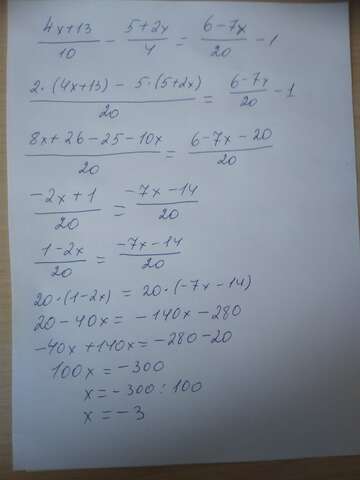 (4x+13)/10 - (5+2x)/4 = (6-7x)/20 - 1
(2·(4x+13) - 5·(5+2x))/20 = (6-7x)/20 - 1
(8x+26-25-10x)/20 = (6-7x-20)/20
(-2x+1)/20 = (-7x-14)/20
(1-2x)/20 = (-7x-14)/20
20·(1-2x) = 20·(-7x-14)
20-40x = -140x-280
-40x+140x = -280-20
100x = -300
x = -300:100
x = -3